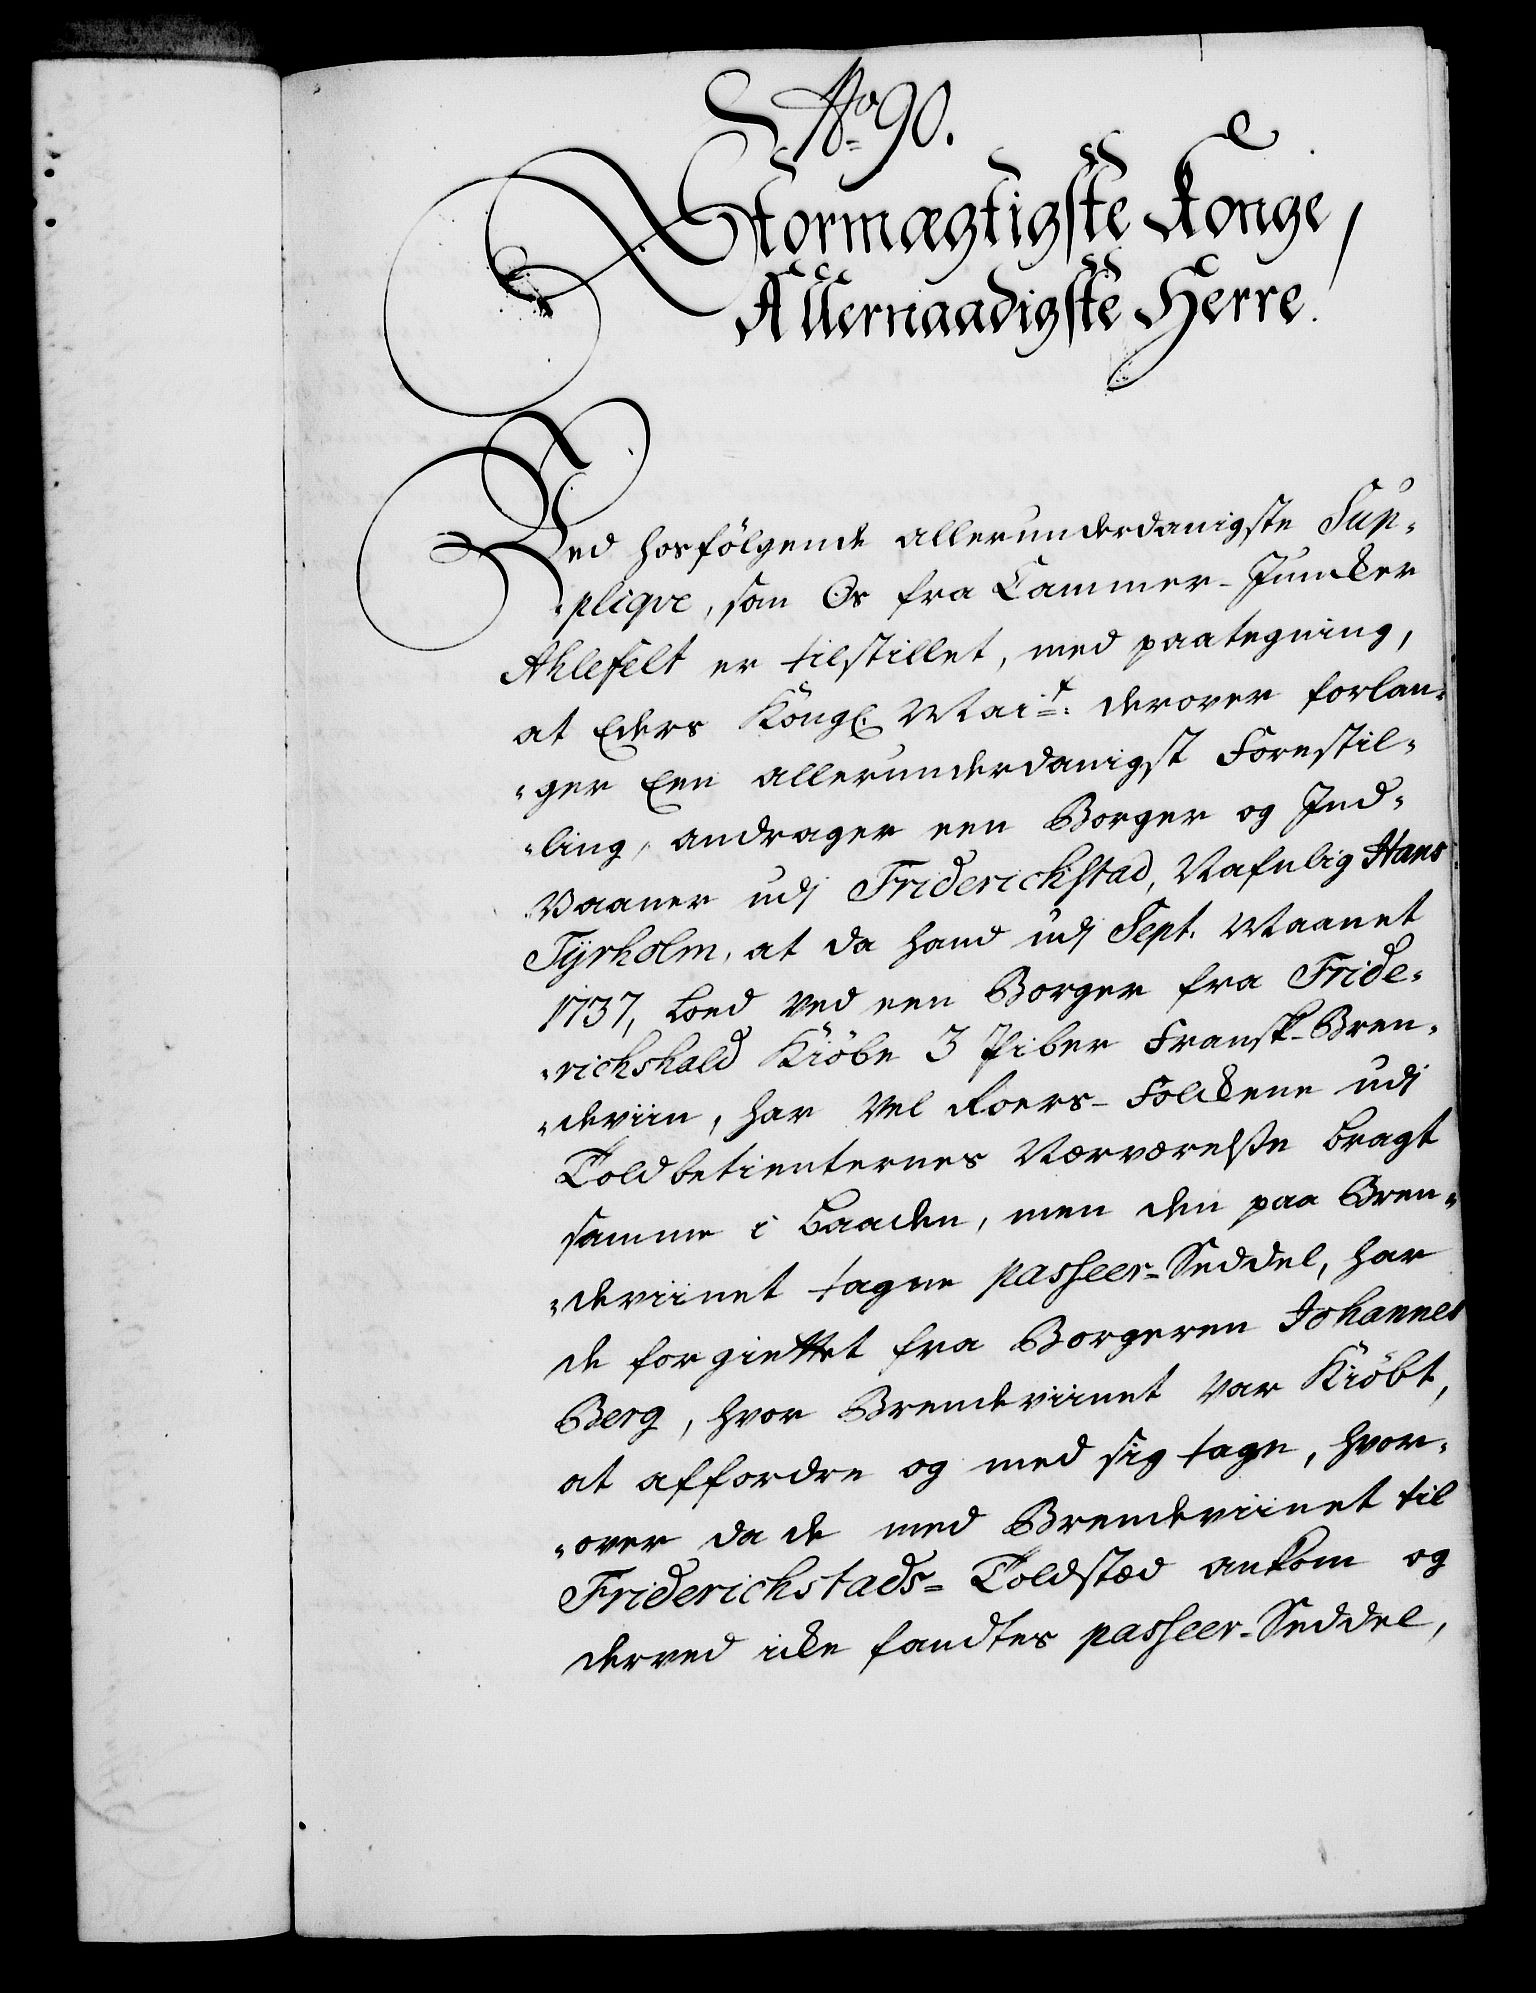 No 90.
Stormægtigste Konge,
Allernaadigste Herre!
Ved hosfølgende allerunderdanigste Sup-
-plique, som Os fra Cammer-Juncker
Ahlefelt er tilstillet, med paategning,
at Eders Kongl. Mait: derover forlan-
-ger Een allerunderdanigst Forestil-
-ling, andrager een Borger og Ind-
Vaaner udj Friderichstad, Nafnlig Hans
Tyrholm, at da hand udj Sept. Maanet
1737, Loed ved een Borger fra Fride-
-richshald Kiøbe 3 Piber Fransk-Bren-
-deviin, har vel Roers-Folckene udj
Toldbetienternes Nærværelsse bragt
samme i Baaden, men den paa Bren-
-deviinet tagne passeer-Seddel, har
de forgiettet fra Borgeren Johannes
Berg, hvor Brendeviinet var Kiøbt,
at affordre og med sig tage, hvor-
-over da de med Brendeviinet til
Friderichstads-Toldsted ankom og
derved icke fandtes passeer-Seddel,